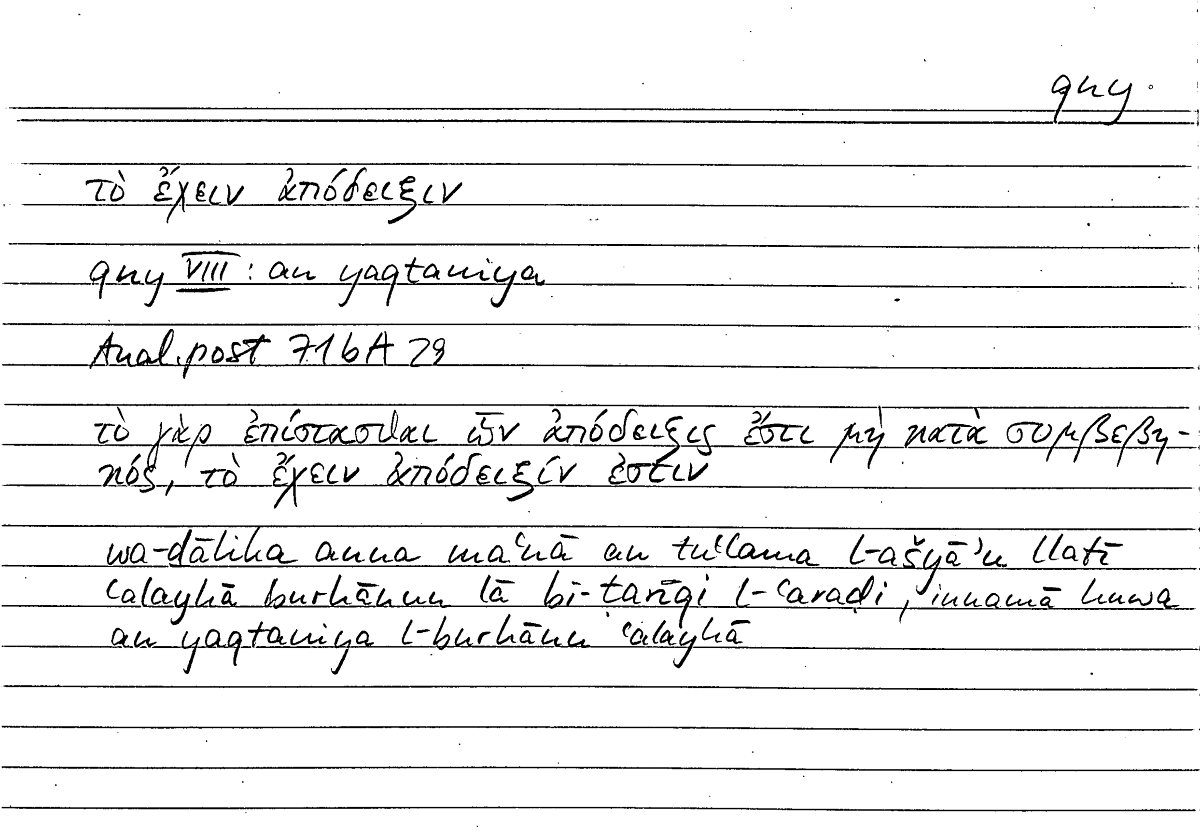 qny.
τὸ ἔχειν ἀπόδειξιν
qny VIII : an yaqtaniya
Anal. post 71 b A 29
τὸ γὰρ ἐπίστασθαι ὧν ἀπόδειξις ἔστι μὴ κατὰ συμβεβη-
κός, τὸ ἔχειν ἀπόδειξίν ἐστιν
wa-dālika anna maʿnā an tuʿlama l-ašyāʾu llatī
ʿalayhā burhānun lā bi-tarīqi l-ʿaraḍi, innamā huwa
an yaqtaniya l-burhānu ʿalayhā